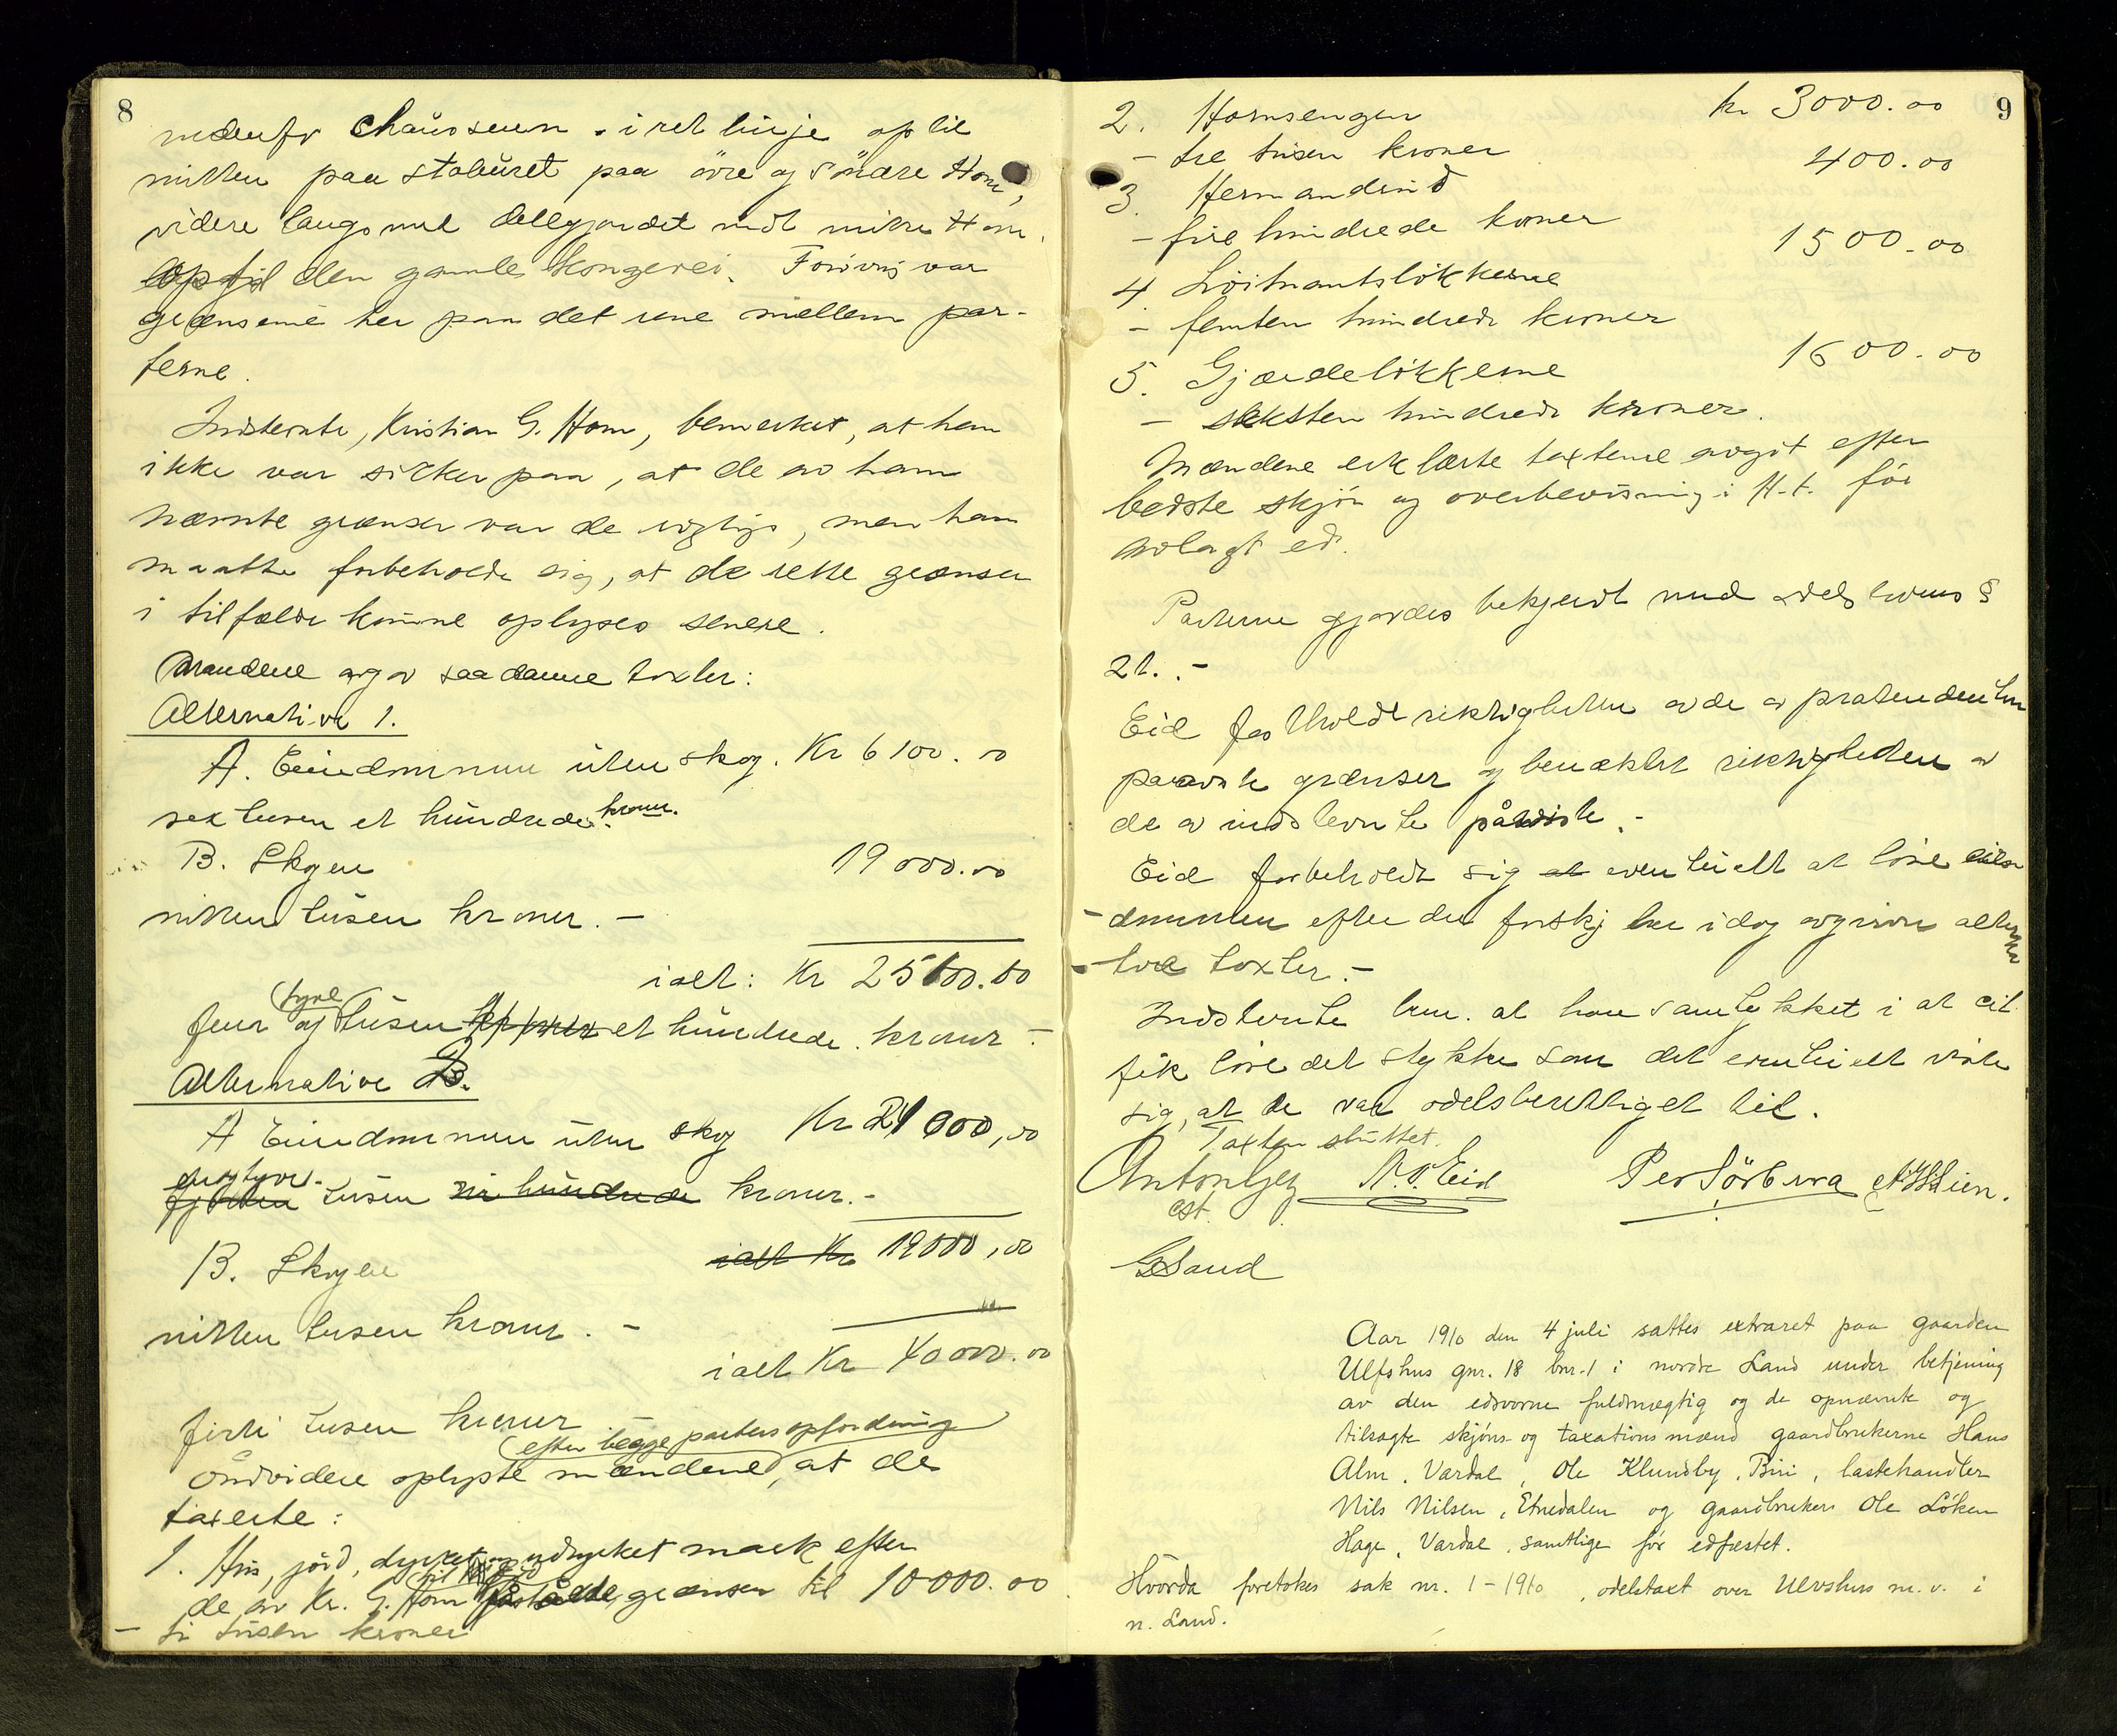 8
nedenfor chausseen i ret linje op til
midten paa stabüret paa övre og söndre Hom,
videre langs med delegjærdet midt mitre Hom,
op til den gamle kongevei. Forövrig var
grænserne her paa det rene mellem par-
terne.
Indstevnte, Kristian G. Hom, bemerket, at han
ikke var sikker paa, at de av ham
nævnte grænser var de rigtige, men han
maatte forbeholde sig, at de rette grænser
i tilfælde kunne oplyses senere.
Mændene avgav saadanne taxter:
Alternative 1.
A. Eiendommen üten skog. Kr 6100.00
sex tusen et hündrede kroner.
B. Skogen 19000.00
nitten tüsen kroner. -
ialt: Kr 25100.00
fem og tyve tüsen et hündrede kroner -
Alternative B.
A Eiendommen üten skog Kr 21000,00
enogtyve
fjorten tusen ni hundrede kroner. -
B. Skogen ialt Kr 19000,00
nitten tusen kroner. -
ialt Kr 40000.00
firti tusen kroner
(efter begge parters opfordring)
Endvidere oplyste mændene, at de
taxerte:
1. Hus, jord, dyrket og udyrket mark efter
de av Kr. G. Hom paaståede grænser til 10000.00
- ti tusen kroner
9
2. Homsengen kr 3000.00
- tre tusen kroner
3. Hermandsrud 400.00
- fire hundrede kroner
4 Löitnantslökkerne 1500.00
- femten hundrede kroner
5. Gjærdelökkerne 1600.00
- seksten hundrede kroner.
Mændene erklærte taxterne avgit efter
bedste skjön og overbevisning i H.t. för
avlagt ed.
Parterne gjordes bekjendt med odelslovens §
21. -
Eid fastholdt riktigheten av de av prætendenten
paaviste grænser og benektet riktigheden av
de av indstevnte påviste. -
Eid forbeholdt sig at eventuelt at löse eien
-dommen efter de forskj her idag avgivne alterna
-tive taxter. -
Indstevnte bem. at han samtykket i at Eid
fik löse det stykke som det eventuelt viste
sig, at de var odelsberettiget til.
Taxten sluttet.
Anton N. O. Eid Per Sörbua
cst.
G Sand
Aar 1910 den 4 juli sattes extraret paa gaarden
Ulfshus gnr. 18 bnr. 1 i nordre Land under betjening
av den edsvorne fuldmægtig og de opnævnte og
tilsagte skjöns- og taxationsmænd gaardbrukerne Hans
Alm, Vardal, Ole Klundby, Biri, lastehandler
Nils Nilsen, Etnedalen og gaardbruker Ole Löken
Hage, Vardal, samtlige för edfæstet.
Hvorda foretokes sak nr. 1-1910, odelstaxt over Ulvshus m. v. i
n. Land.